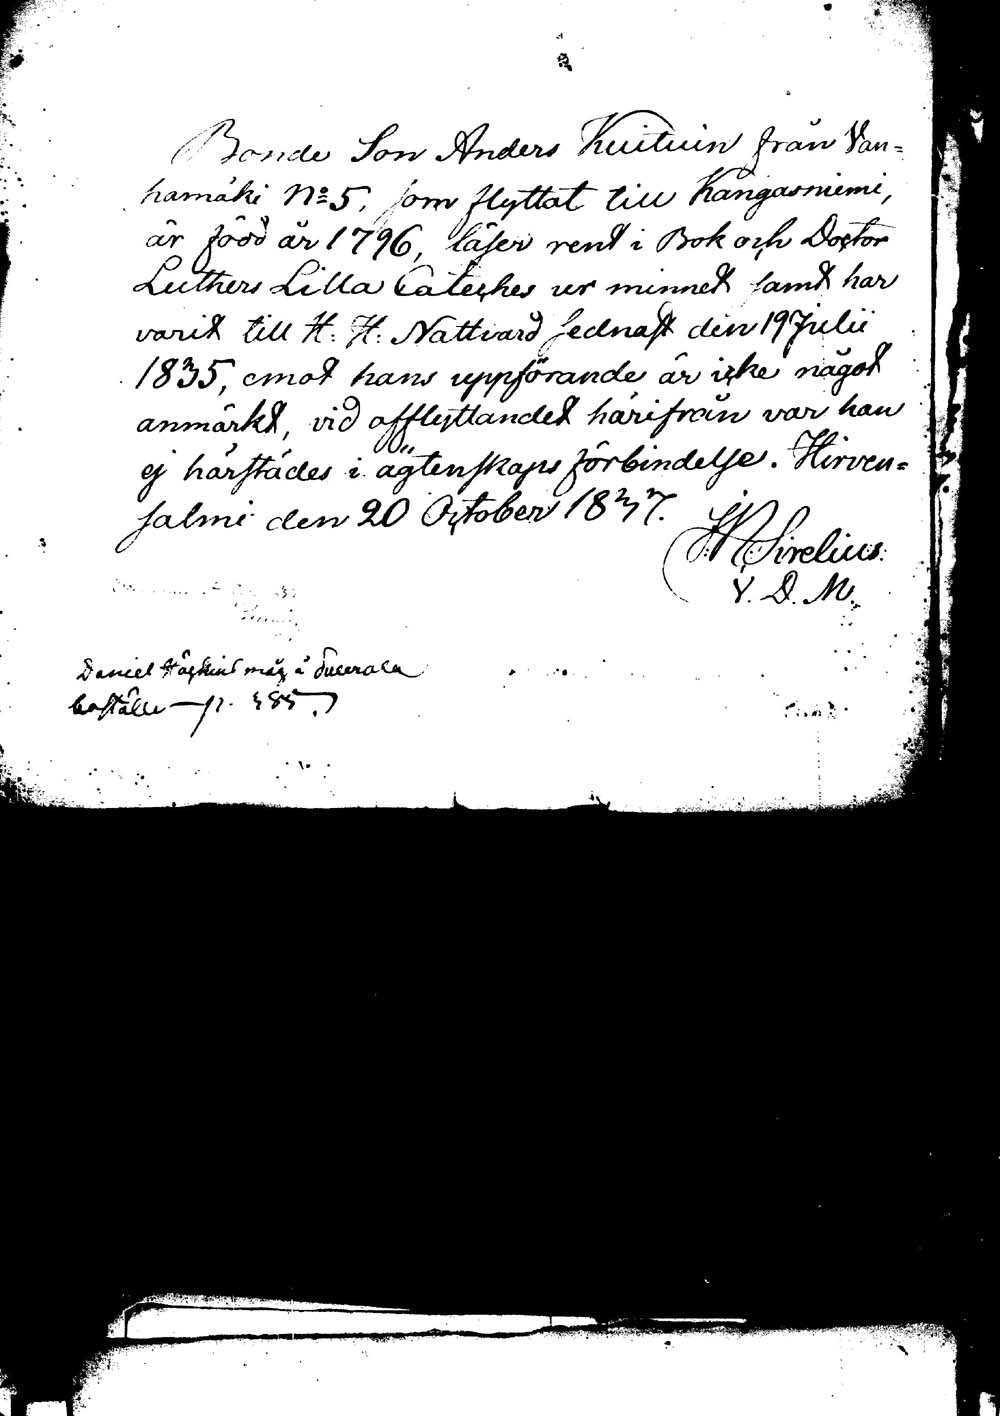 Bonde Son Anders Kuituin från Van=
hamäki No 5, som flyttat till Kangasniemi,
är född år 1796, läser rent i Bok och Doctor
Luthers Lilla Cateches ur minnet samt har
varit till H. H. Nattvard sednast den 19 Julii
1835, emot hans uppförande är icke något
anmärkt, vid afflyttandet härifrån var han
ej härstädes i ägtenskaps förbindelse. Hirven=
salmi den 20 October 1837.
Sirelius.
V. D. M.
Daniel måg å
boställe p. 385.